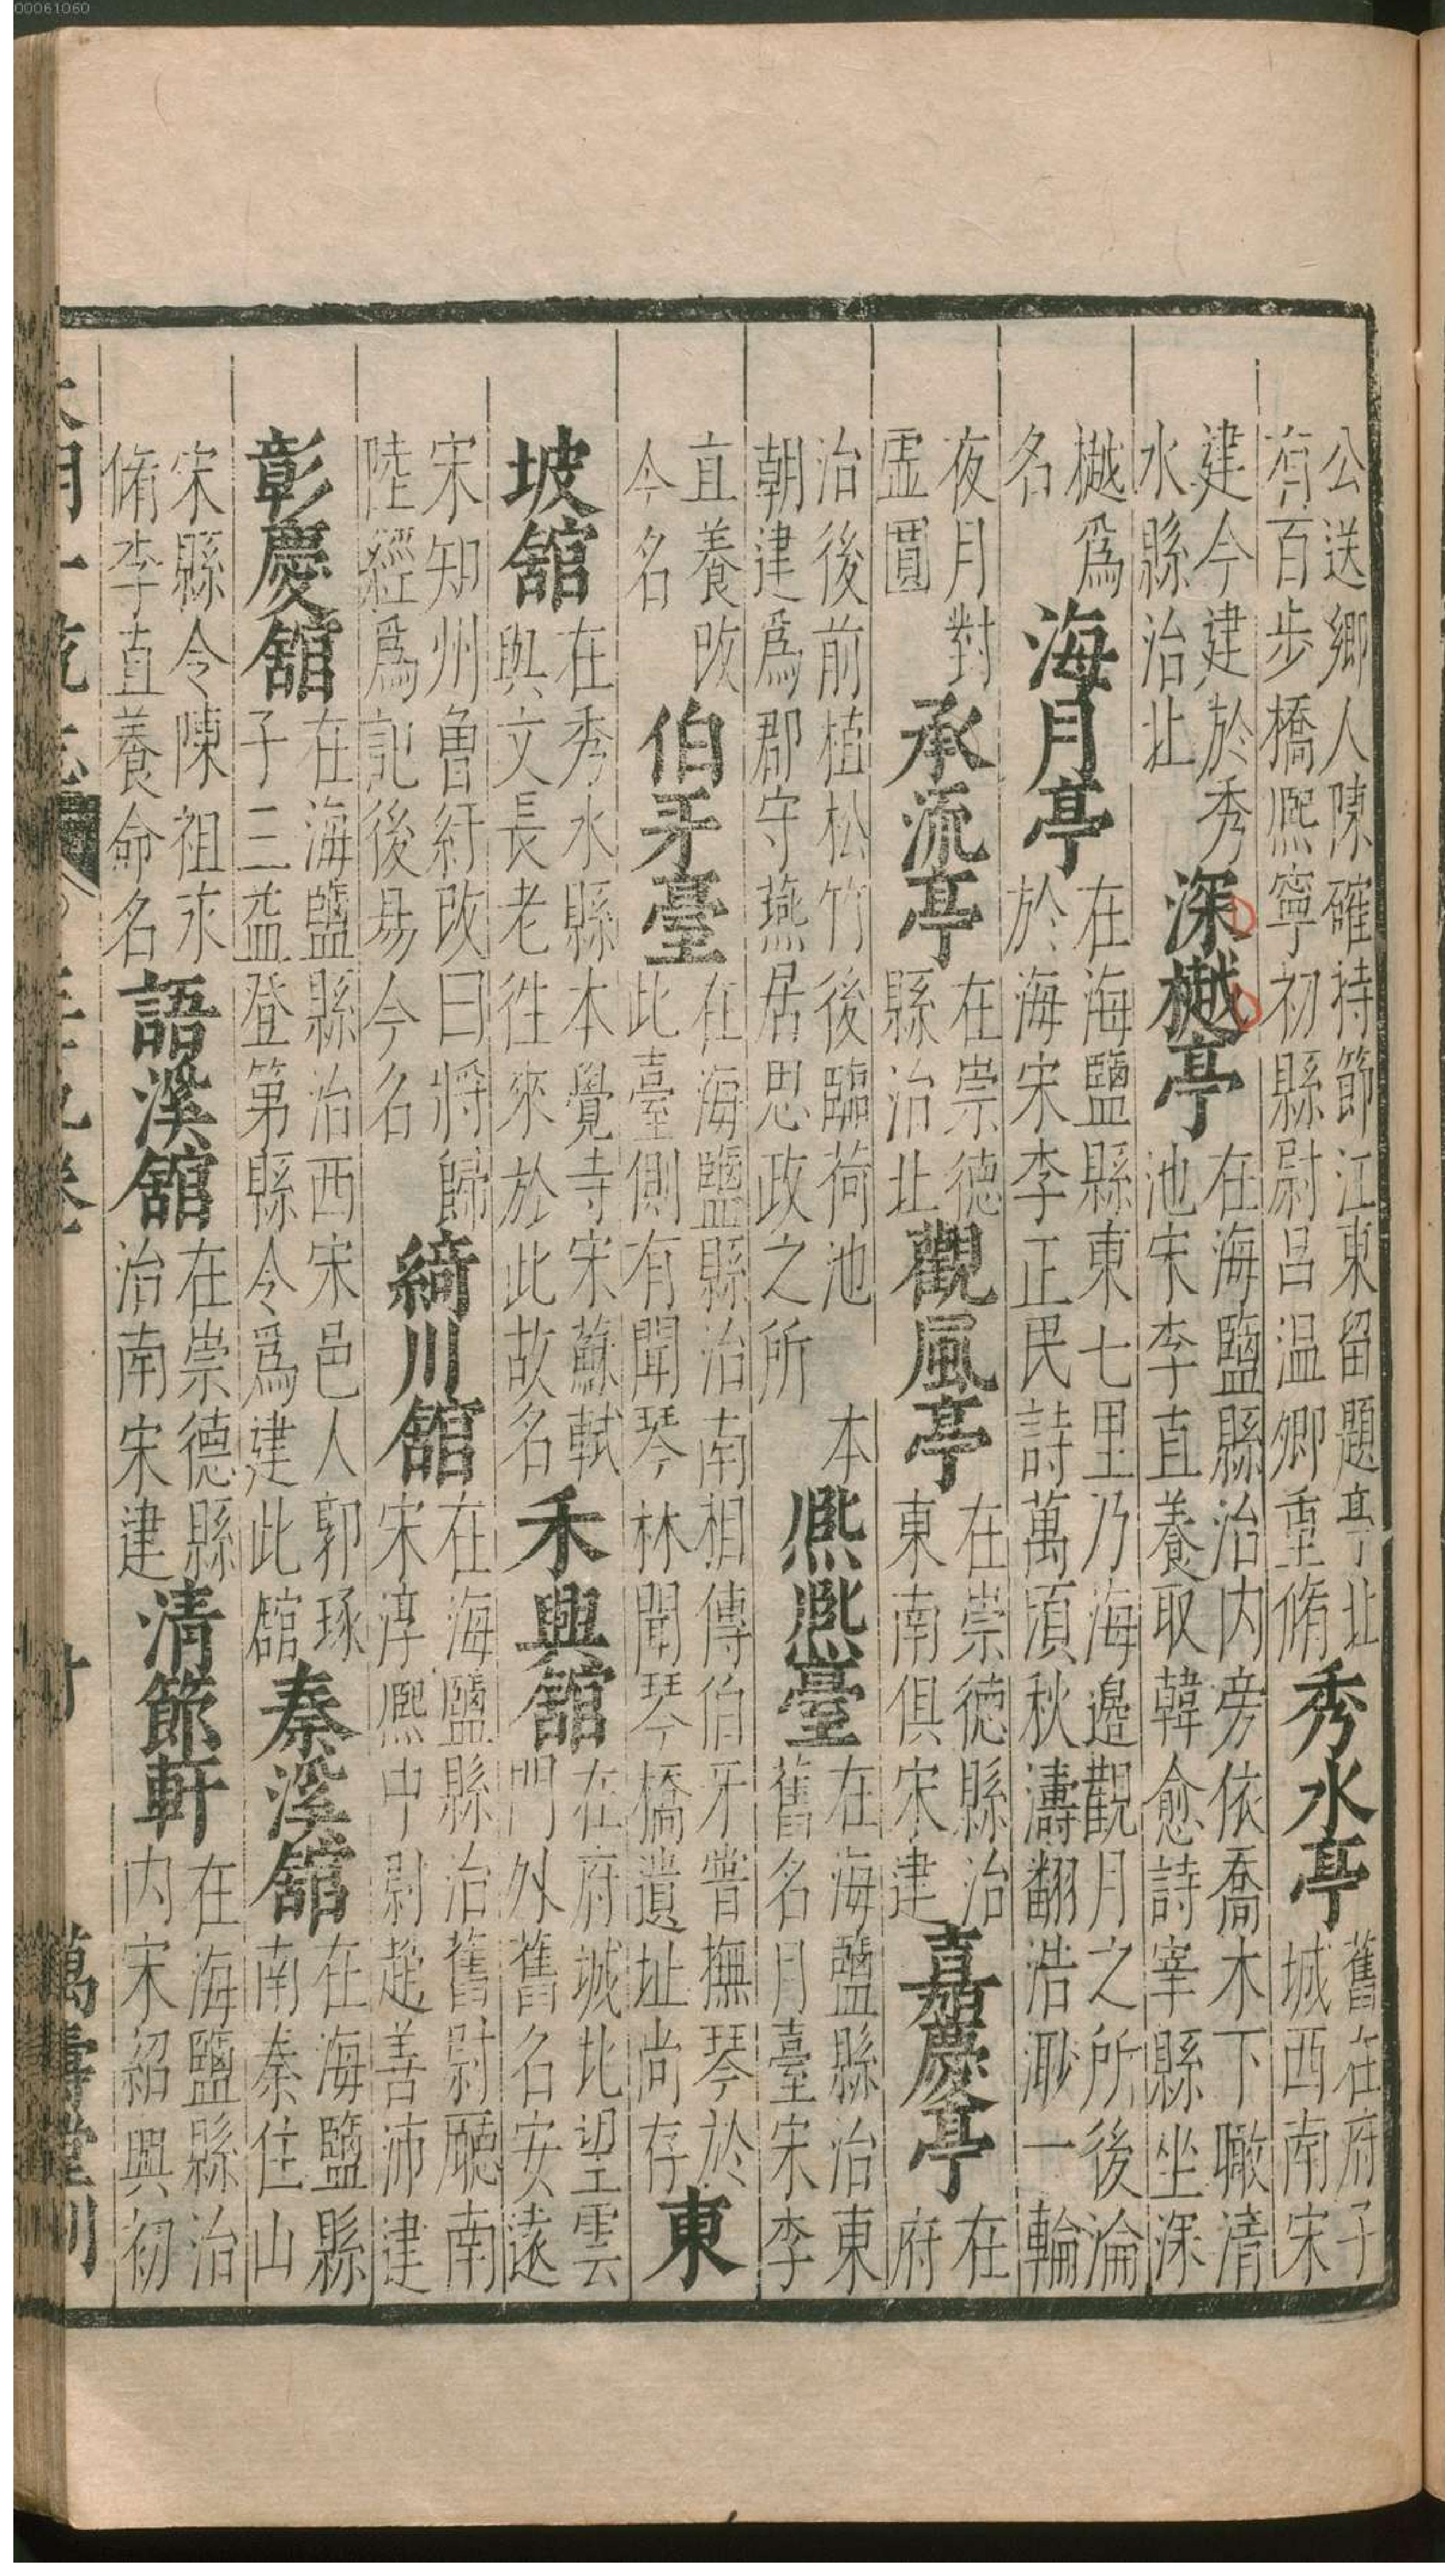 公送鄉人陳確持節江東留題亭北
有百步橋熈寧初縣尉呂温卿重脩
秀水亭
舊在府子
城西南宋
建今建於秀
水縣治北
深樾亭
在海鹽縣治内旁依喬木下瞰清
池宋李直養取韓愈詩宰縣坐深
樾爲
名
海月亭
在海鹽縣東七里乃海邊觀月之所後淪
於海宋李正民詩萬頃秋濤翻浩渺一輪
夜月對
虛圓
承流亭
在崇德
縣治北
觀風亭
在崇德縣治
東南俱宋建
嘉慶亭
在
府
治後前植松竹後臨荷池本
朝建爲郡守燕居思政之所
熈熈臺
在海鹽縣治東
舊名月臺宋李
直養改
今名
伯牙臺
在海鹽縣治南相傳伯牙嘗撫琴於
此臺側有聞琴林聞琴橋遺址尚存
東
坡館
在秀水縣本覺寺宋蘇軾
與文長老徃來於此故名
禾興館
在府城北望雲
門外舊名安遠
宋知州魯紆改曰將歸
陸經爲記後易今名
綺川館
在海鹽縣治舊尉廳南
宋淳熈中尉趙善沛建
彰慶館
在海鹽縣治西宋邑人郭琢
子三益登第縣令爲建此館
秦溪館
在海鹽縣
南秦住山
宋縣令陳祖求
脩李直養命名
語溪館
在崇德縣
治南宋建
清節軒
在海鹽縣治
内宋紹興初
萬壽堂刊
00061060